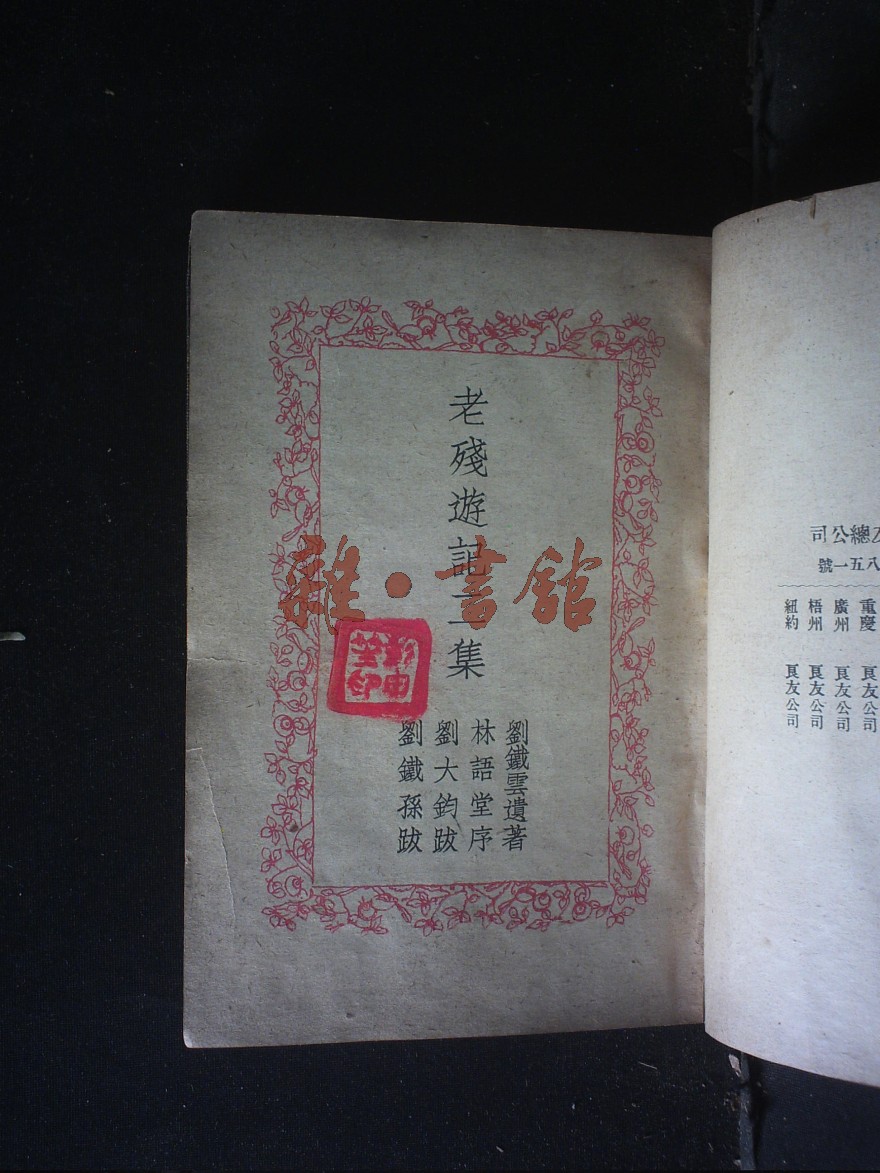 老殘遊記二集
劉鐵雲遺著
林語堂序
劉大鈞跋
劉鐵孫跋
雜·書館
總公司
八五一號
重慶 良友公司
廣州 良友公司
梧州 良友公司
紐約 良友公司